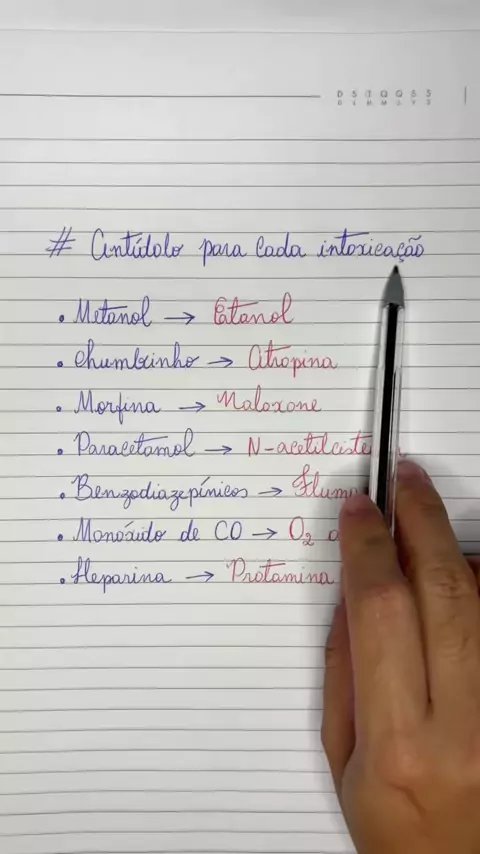 D S T Q Q S S
D L M M J V S
# Antídoto para Cada intoxicação
• Metanol → Etanol
• Chumbinho → Atropina
• Morfina → Naloxone
• Paracetamol → N-acetilciste
• Benzodiazepínicos → Fluma
• Monóxido de CO → O₂ a
• Heparina → Protamina